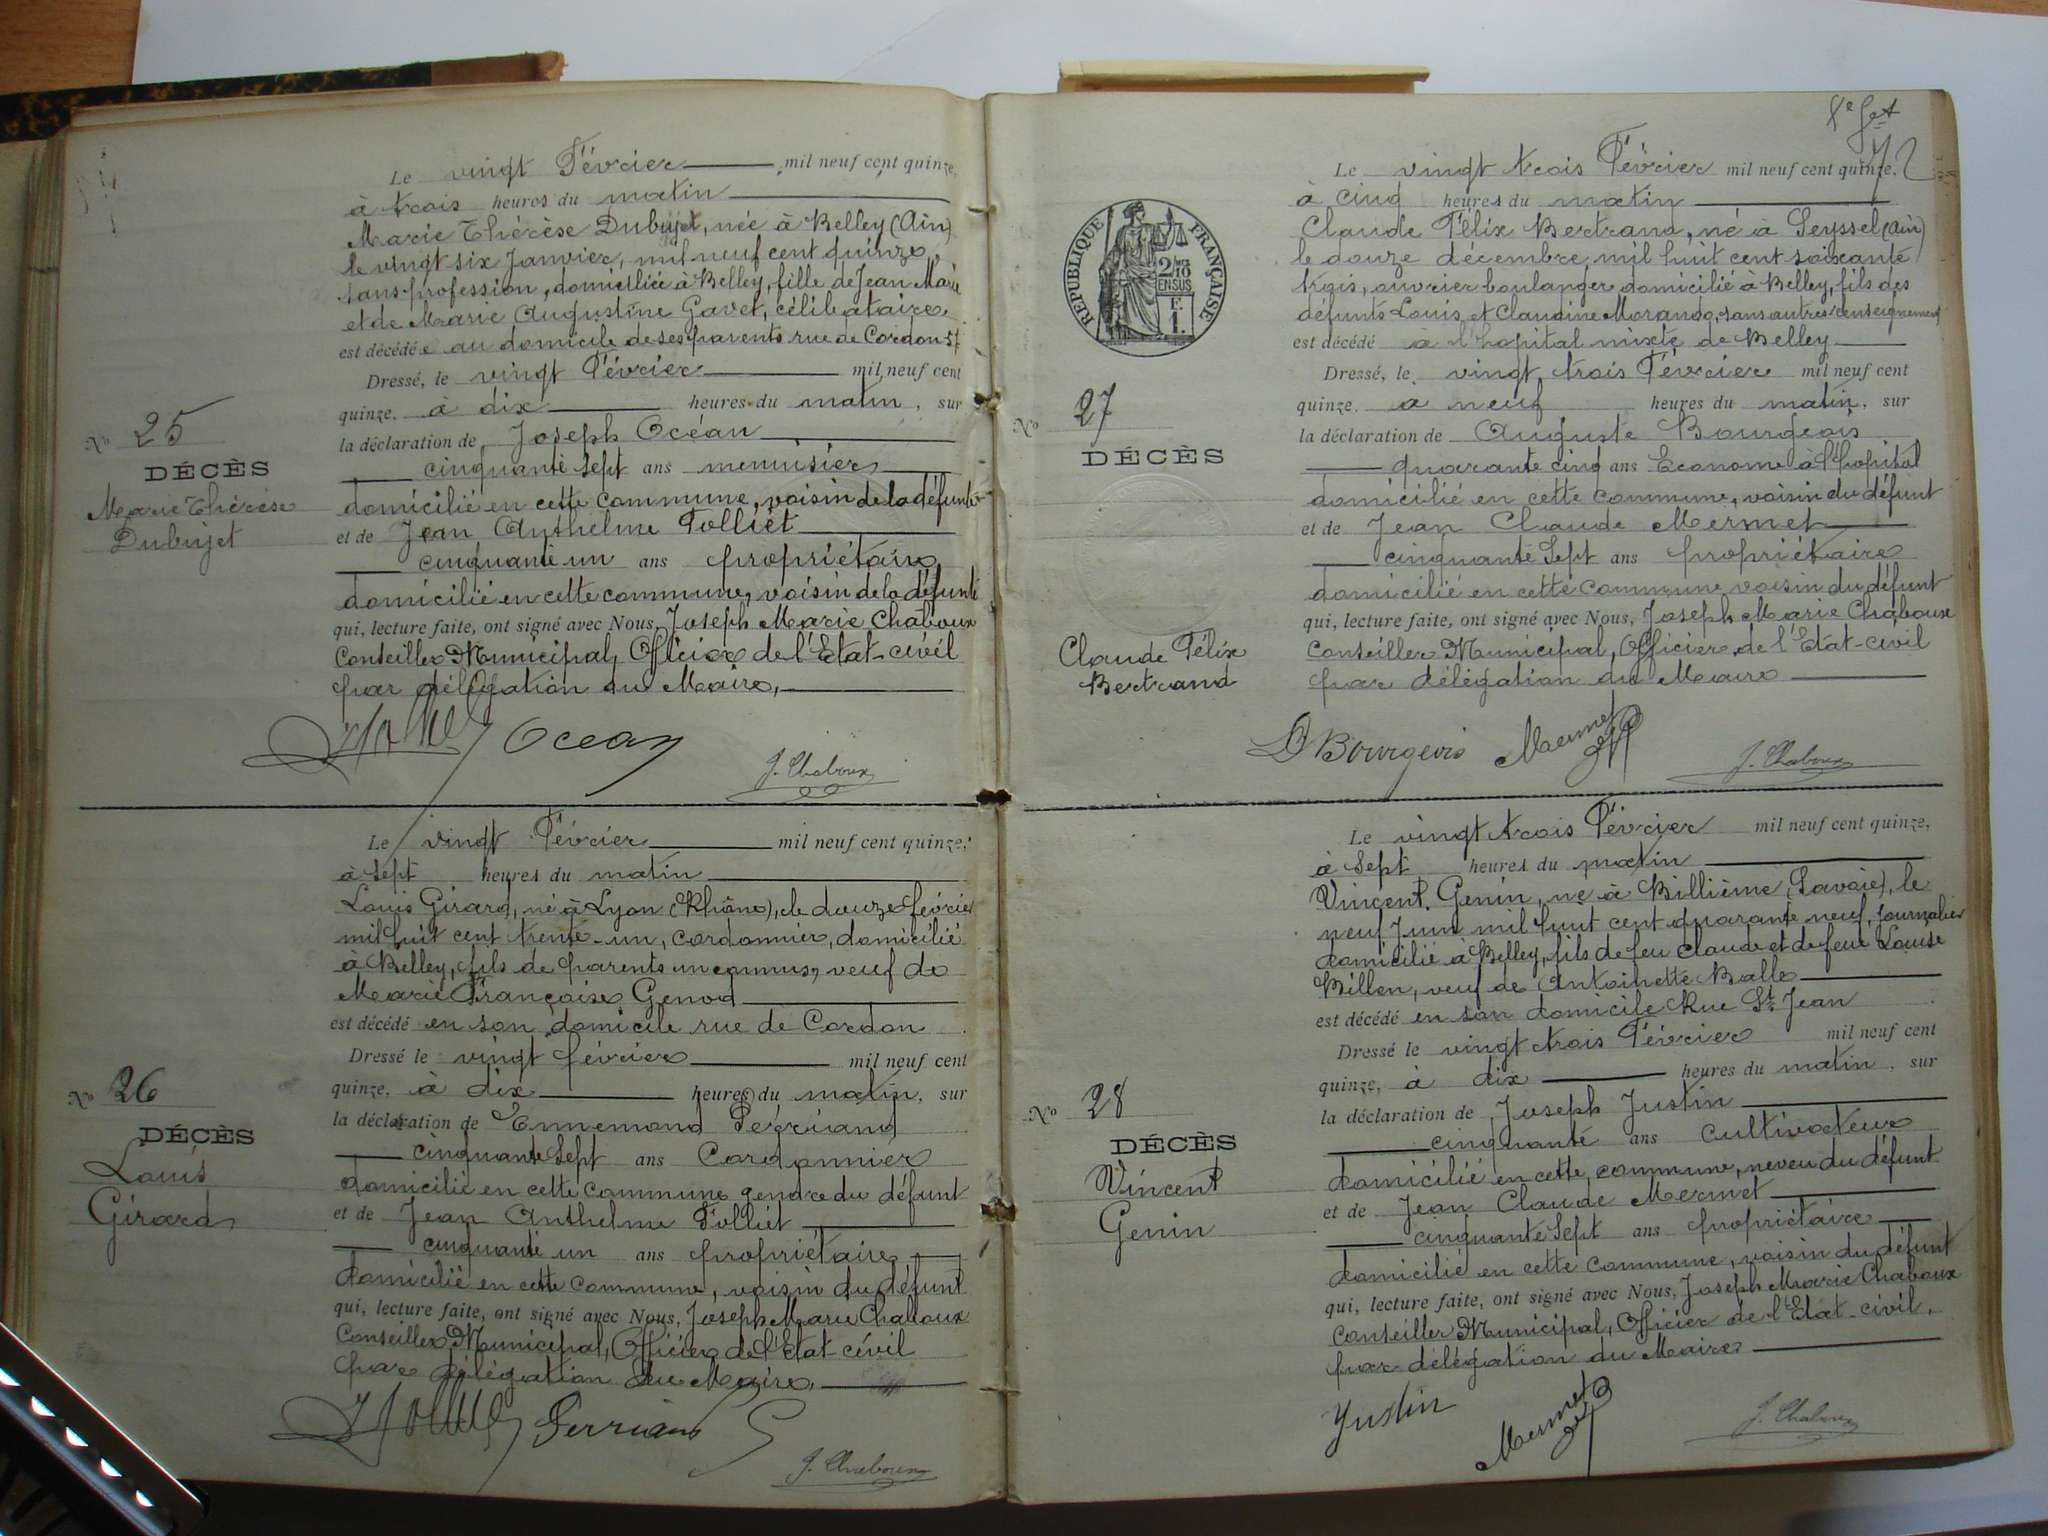 Le vingt Février mil neuf cent quinze,
à trois heures du matin
Marie Thérèse Dubujet, née à Belley (Ain)
le vingt six Janvier, mil neuf cent quinze,
sans profession, domiciliée à Belley, fille de Jean Marie
et de Marie Augustine Gavet, célibataire,
est décédée au domicile de ses parents rue de Cordon 57
Dressé, le vingt Février mil neuf cent
quinze, à dix heures du matin, sur
la déclaration de Joseph Océan
cinquante sept ans menuisier
domicilié en cette commune, voisin de la défunte
et de Jean Anthelme Tolliet
cinquante un ans propriétaire
domicilié en cette commune, voisin de la défunte
qui, lecture faite, ont signé avec Nous, Joseph Marie Chaboux
Conseiller Municipal, Officier de l'Etat-civil
par délégation du Maire,
No 25
DÉCÈS
Marie Thérèse
Dubujet
Ocean
J. Chaboux
Le vingt Février mil neuf cent quinze,
à sept heures du matin
Louis Girard, né à Lyon (Rhône), le douze février
mil huit cent trente-un, cordonnier, domicilié
à Belley, fils de parents inconnus, veuf de
Marie Françoise Genod
est décédé en son domicile rue de Cordon
Dressé le vingt février mil neuf cent
quinze, à dix heures du matin, sur
la déclaration de Ennemond Perriand
cinquante sept ans Cordonnier
domicilié en cette commune gendre du défunt
et de Jean Anthelme Tolliet
cinquante un ans propriétaire
domicilié en cette commune, voisin du défunt
qui, lecture faite, ont signé avec Nous, Joseph Marie Chaboux
Conseiller Municipal, Officier de l'Etat-civil
par délégation du Maire,
No 26
DÉCÈS
Louis
Girard
Perriand
J. Chaboux
72
Le vingt trois Février mil neuf cent quinze,
à cinq heures du matin
Claude Félix Bertrand, né à Seyssel (Ain)
le douze décembre mil huit cent soixante
trois, ouvrier boulanger domicilié à Belley, fils des
défunts Louis et Claudine Morand, sans autres renseignements
est décédé à l'hopital mixte de Belley
Dressé, le vingt trois Février mil neuf cent
quinze, à neuf heures du matin, sur
la déclaration de Auguste Bourgeois
quarante cinq ans Econome à l'hopital
domicilié en cette commune, voisin du défunt
et de Jean Claude Mermet
cinquante sept ans propriétaire
domicilié en cette commune voisin du défunt
qui, lecture faite, ont signé avec Nous, Joseph Marie Chaboux
Conseiller Municipal, Officier de l'Etat-civil
par délégation du Maire
RÉPUBLIQUE FRANÇAISE
2/10
EN SUS
F.
1.
No 27
DÉCÈS
Claude Félix
Bertrand
Bourgeois Mermet
J. Chaboux
Le vingt trois Février mil neuf cent quinze,
à sept heures du matin
Vincent Genin, né à Billième (Savoie), le
neuf Juin mil huit cent quarante neuf, journalier
domicilié à Belley, fils de feu Claude et de feue Louise
Billen, veuf de Antoinette Balle
est décédé en son domicile Rue St Jean
Dressé le vingt trois Février mil neuf cent
quinze, à dix heures du matin, sur
la déclaration de Joseph Justin
cinquante ans Cultivateur
domicilié en cette commune, neveu du défunt
et de Jean Claude Mermet
cinquante sept ans propriétaire
domicilié en cette commune, voisin du défunt
qui, lecture faite, ont signé avec Nous, Joseph Marie Chaboux
Conseiller Municipal, Officier de l'Etat-civil,
par délégation du Maire
No 28
DÉCÈS
Vincent
Genin
Justin
Mermet
J. Chaboux